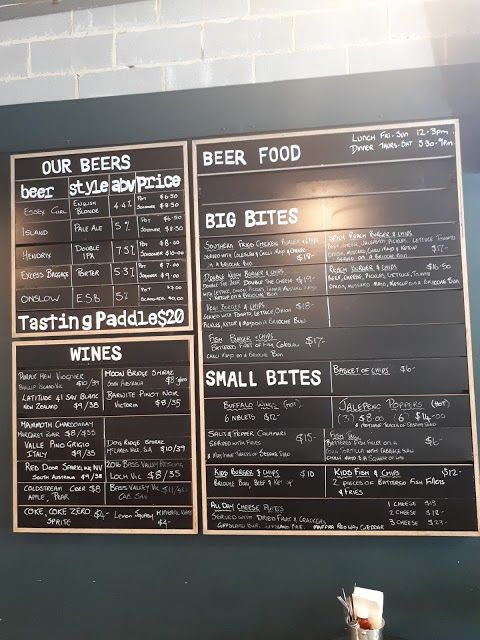 OUR BEERS
beer style abv Price
Essex Girl English Blonde 4.4% Pot $6.50
Schooner $8.50
Island Pale Ale 5% Pot $6.50
Schooner $8.50
Hendry Double IPA 7.5% Pot $8.00
Schooner $10.00
Excess Baggage Porter 5.3% Pot $7.00
$9.00
Onslow ESB 5%
Tasting Paddle $20
WINES
Viognier
Phillip Island Vic $10/39
Latitude 41 Sav Blanc
New Zealand $9/38
Mammoth Chardonnay
Margaret River $8/$35
Valle Pino Grigio
Italy $9/35
Red Door Sparkling NV
South Australia $9/38
Coldstream Cider $8
Apple, Pear
Coke, Coke Zero $4
Sprite
Moon Bridge Shiraz
South Australia $8 glass
Barwite Pinot Noir
Victoria $8/35
Dog Ridge Shiraz
McLaren Vale SA $10/39
2016 Bass Valley Riesling
Loch Vic $8/35
Bass Valley Vic
Cab Sav
Lemon Squash Mineral Water
$4-
BEER FOOD
Lunch Fri-Sun 12-3pm
Dinner Thurs-Sat 5.30-9pm
BIG BITES
Southern Fried Chicken Burger & Chips
Served with Coleslaw & Chilli Mayo & Cheese
in a Brioche Bun $18-
Double Roch Burger & Chips
Double the Beef Double the Cheese $19-
with Lettuce, Onion, Pickles, Tomato Mustard
Ketchup on a Brioche Bun
Burger & Chips $18-
Served with Tomato, Lettuce, Onion
Pickles, Ketchup & Mayo on a Brioche Bun
Fish Burger & Chips
Battered Fillet of Fish, Coleslaw $17-
Chilli Mayo on a Brioche Bun
Spicy Roach Burger & Chips
Beef, Cheese, Jalapeno, Pickles, Lettuce, Tomato
Onion, Mustard, Chilli Mayo & Ketchup $17-
Served on a Brioche Bun
Roach Burger & Chips $16.50
Beef, Cheese, Pickles, Lettuce, Tomato
Onion, Mustard, Mayo, Ketchup on a Brioche Bun
SMALL BITES
Basket of Chips $6-
Buffalo Wings (Hot)
6 Niblets $12-
Jalapeno Poppers (Hot)
(3) $8.00 (6) $14.00
Salt & Pepper Calamari $15-
Served with Fries
Fish Taco $6-
Battered Fish Fillet on a
Tortilla with Cabbage Salad
Chilli Mayo & a Squeeze of Lime
Kids Burger & Chips $10
Brioche Bun, Beef & Ket
Kids Fish & Chips $12-
2 pieces of Battered Fish Fillets
& Fries
All Day Cheese Plates
Served with Dried Fruit & Crackers
Gippsland Blue, Gippsland Brie, Maffra Red Wax Cheddar
1 Cheese $13-
2 Cheese $18-
3 Cheese $23-